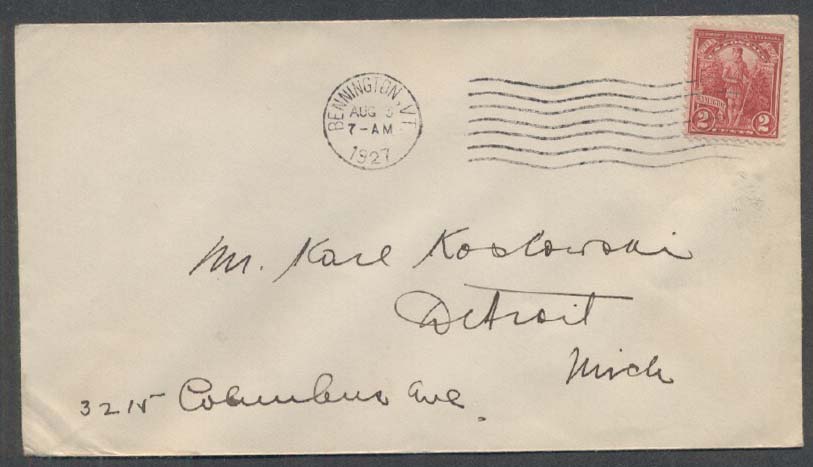 BENNINGTON, VT.
AUG 3
7-AM
1927
2 2
Mr. Karl Koslowski
Detroit
Mich
3215 Columbus Ave.